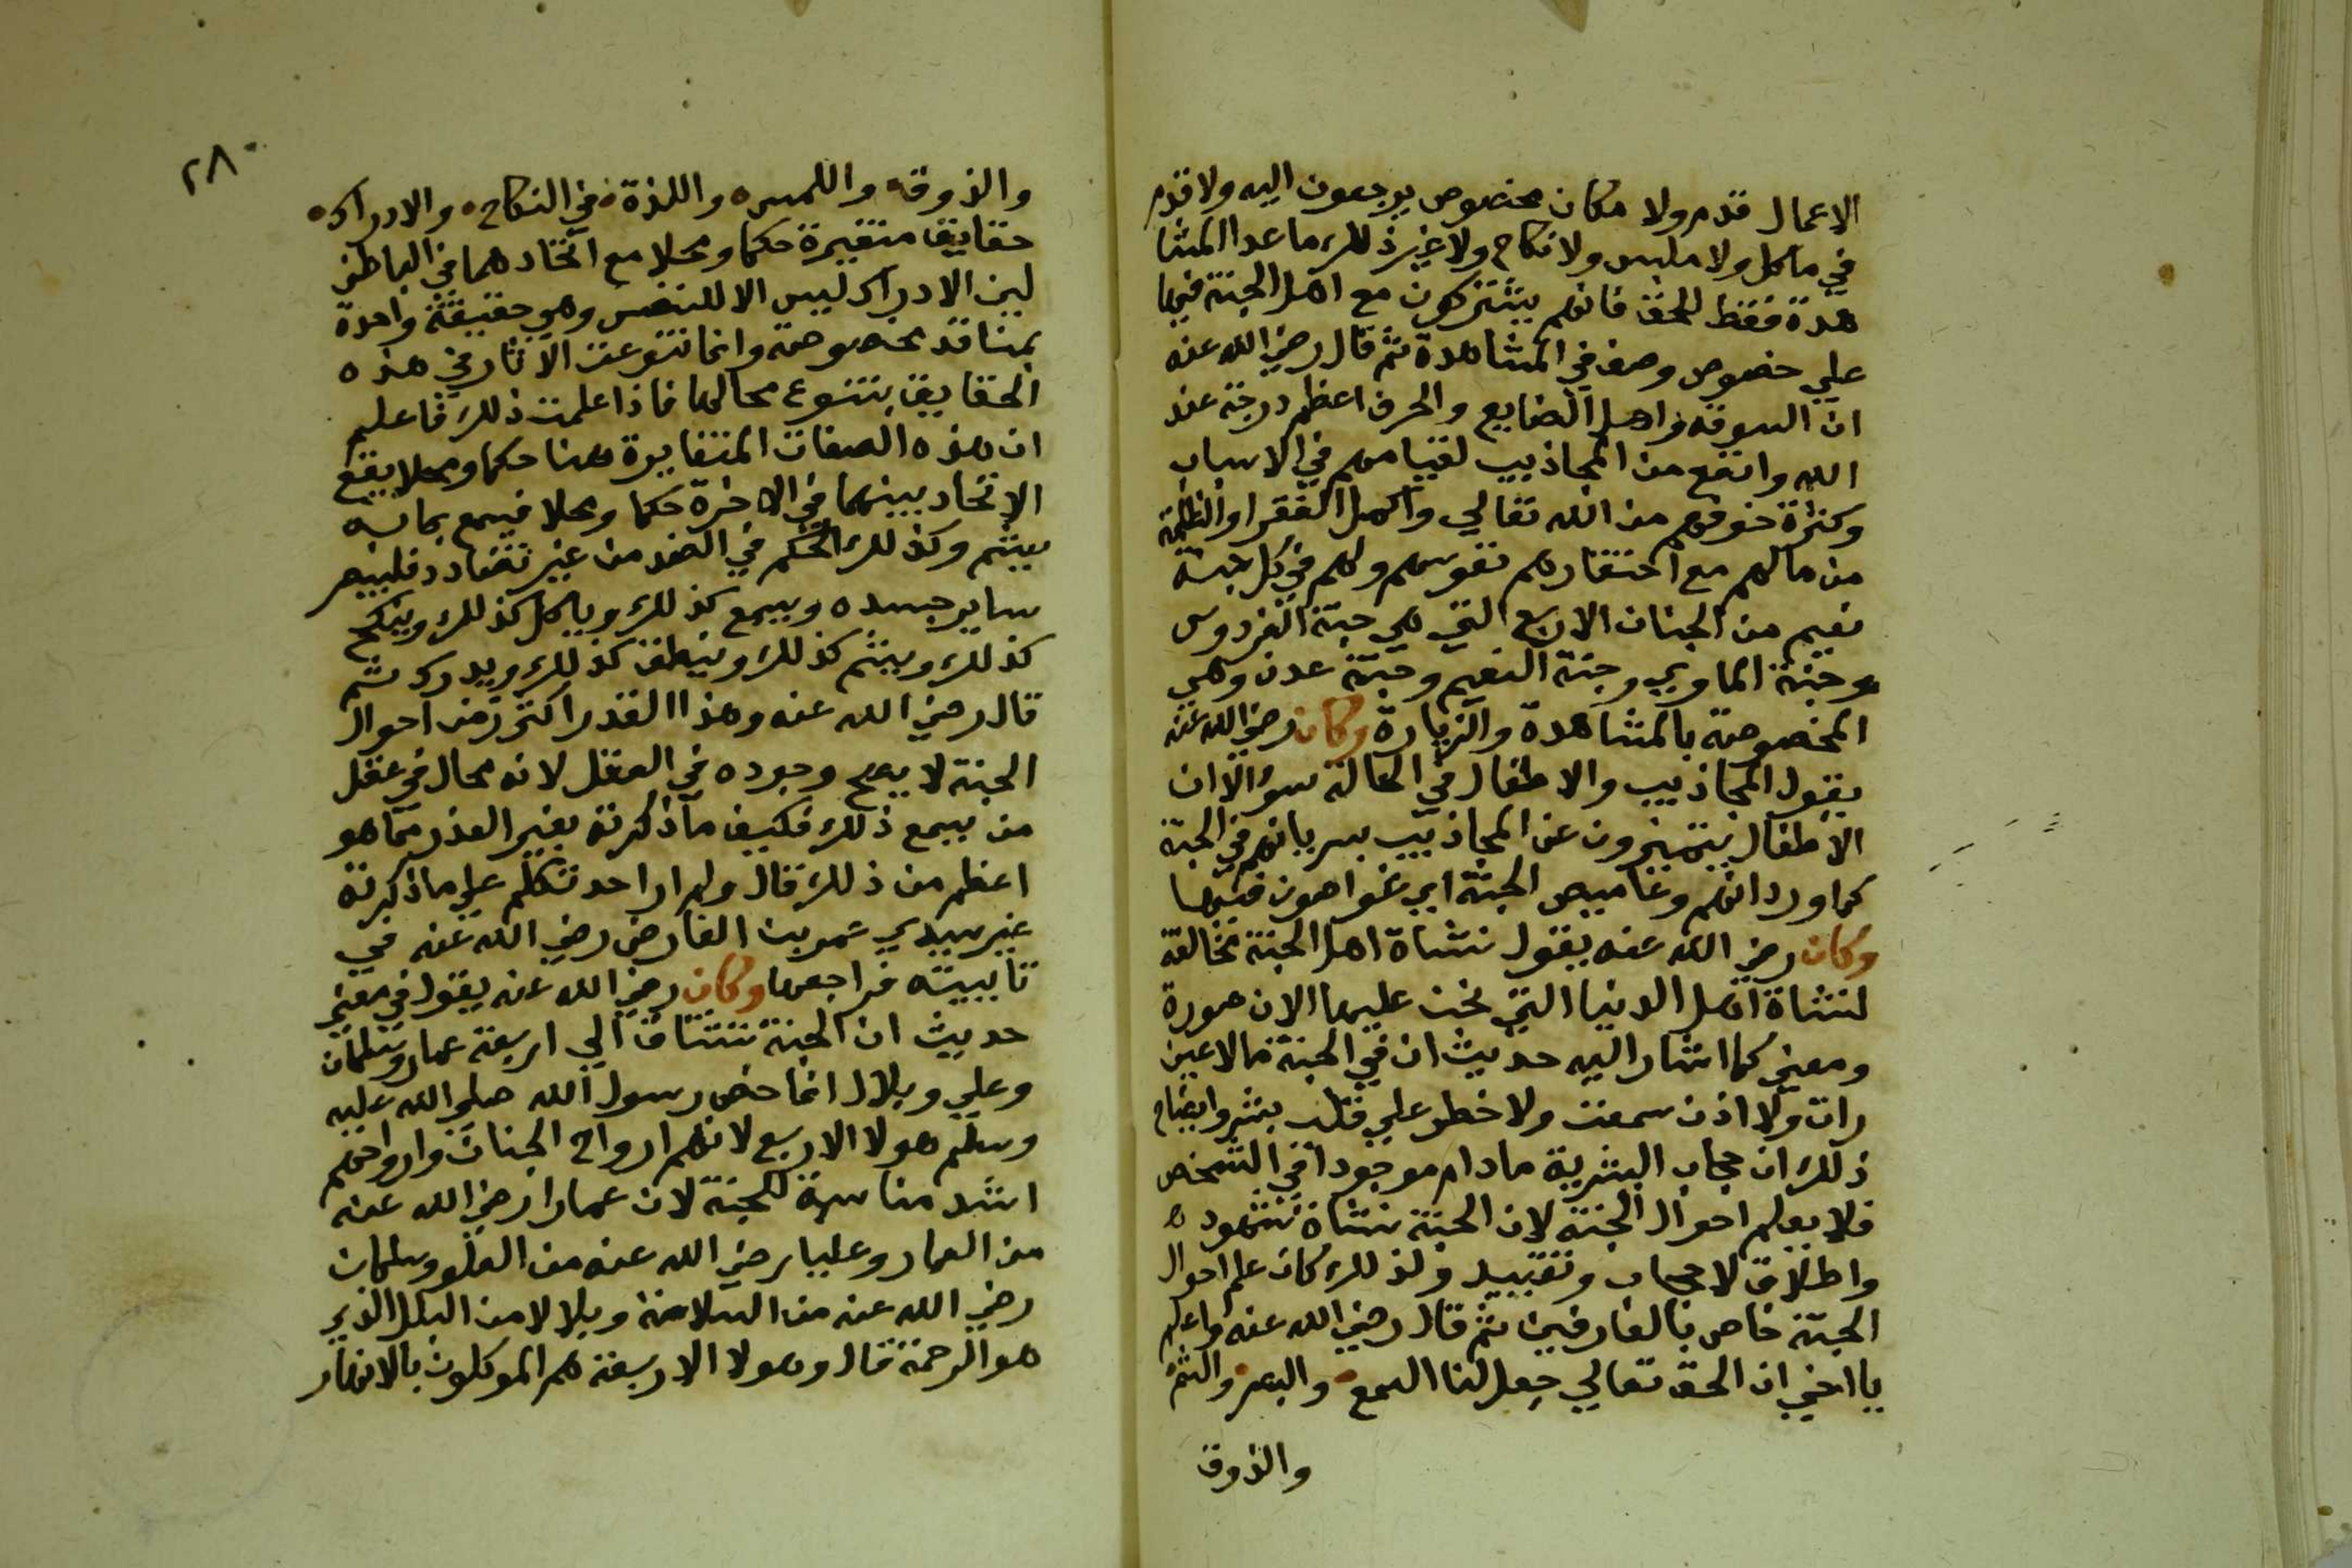 الاعمال قدم ولا مكان مخصوص يرجعون اليه ولا قدم
في ماكل ولا ملبس ولا نكاح ولا غير ذلك ما عدا المشا
هدة فقط للحق فانهم يشتركون مع اهل الجنة فيها
علي خصوص وصف في المشاهدة ثم قال رضي الله عنه
ان السوقة واهل الصنايع والحرف اعظم درجة عند
الله وانفع من المجاذيب لقيامهم في الاسباب
وكثرة خوفهم من الله تعالي واكل الفقرا والظلمة
من مالهم مع احتقارهم نفوسهم ولهم في كل جنة
نعيم من الجنان الاربع التي هي جنة الفردوس
وجنة الماوي وجنة النعيم وجنة عدن وهي
المخصوصة بالمشاهدة والزيارة وكان رضي الله عنه
يقول المجاذيب والاطفال في الحالة سوا الا ان
الاطفال يتميزون عن المجاذيب بسريانهم في الجنة
كما ورد انهم دعاميص الجنة اي غواصون فيها
وكان رضي الله عنه يقول نشاة اهل الجنة مخالفة
لنشاة اهل الدنيا التي نحن عليها الان صورة
ومعني كما اشار اليه حديث ان في الجنة مالا عين
رات ولا اذن سمعت ولا خطر علي قلب بشر وايضاح
ذلك ان حجاب البشرية مادام موجودا في الشخص
فلا يعلم احوال الجنة لان الجنة نشاة شهود
واطلاق لا حجاب وتقييد ولذلك كان علم احوال
الجنة خاص بالعارفين ثم قال رضي الله عنه واعلم
يا اخي ان الحق تعالي جعل لنا السمع والبصر والشم
والذوق
٢٨٠
والذوق واللمس واللذة في النكاح والادراك
حقايق متغيرة حكما ومحلا مع اتحادهما في الباطن
لين الادراك ليس الا للنفس وهي حقيقة واحدة
بمنافذ مخصوصة وانما تنوعت الاثار في هذه
الحقايق بتنوع محالها فاذا علمت ذلك فاعلم
ان هذه الصفات المتغايرة هنا حكما ومحلا يقع
الاتحاد بينهما في الاخرة حكما ومحلا فيسمع بما به
يشم وكذلك الحكم في الضد من غير تضادد فليبصر
ساير جسده ويسمع كذلك وياكل كذلك وينكح
كذلك ويشم كذلك وينطق كذلك ويدرك ثم
قال رضي الله عنه وهذا القدر اكثر من احوال
الجنة لا يصح وجوده في العقل لانه محال في عقل
من يسمع ذلك فكيف ما ذكرته بغير العذر مما هو
اعظم من ذلك قال ولم ار احد تكلم علي ما ذكرته
غير سيدي عمر بن الفارض رضي الله عنه في
تاييته فراجعها وكان رضي الله عنه يقول في معني
حديث ان الجنة تشتاق الي اربعة عمار وسلمان
وعلي وبلال انما خص رسول الله صلي الله عليه
وسلم هولا الاربع لانهم ارواح الجنات وارواحهم
اشد مناسبة للجنة لان عمارا رضي الله عنه
من العمار وعليا رضي الله عنه من العلو وسلمان
رضي الله عنه من السلامة وبلالا من البلل الذي
هو الرحمة قال وهولا الاربعة هم الموكلون بالانهار